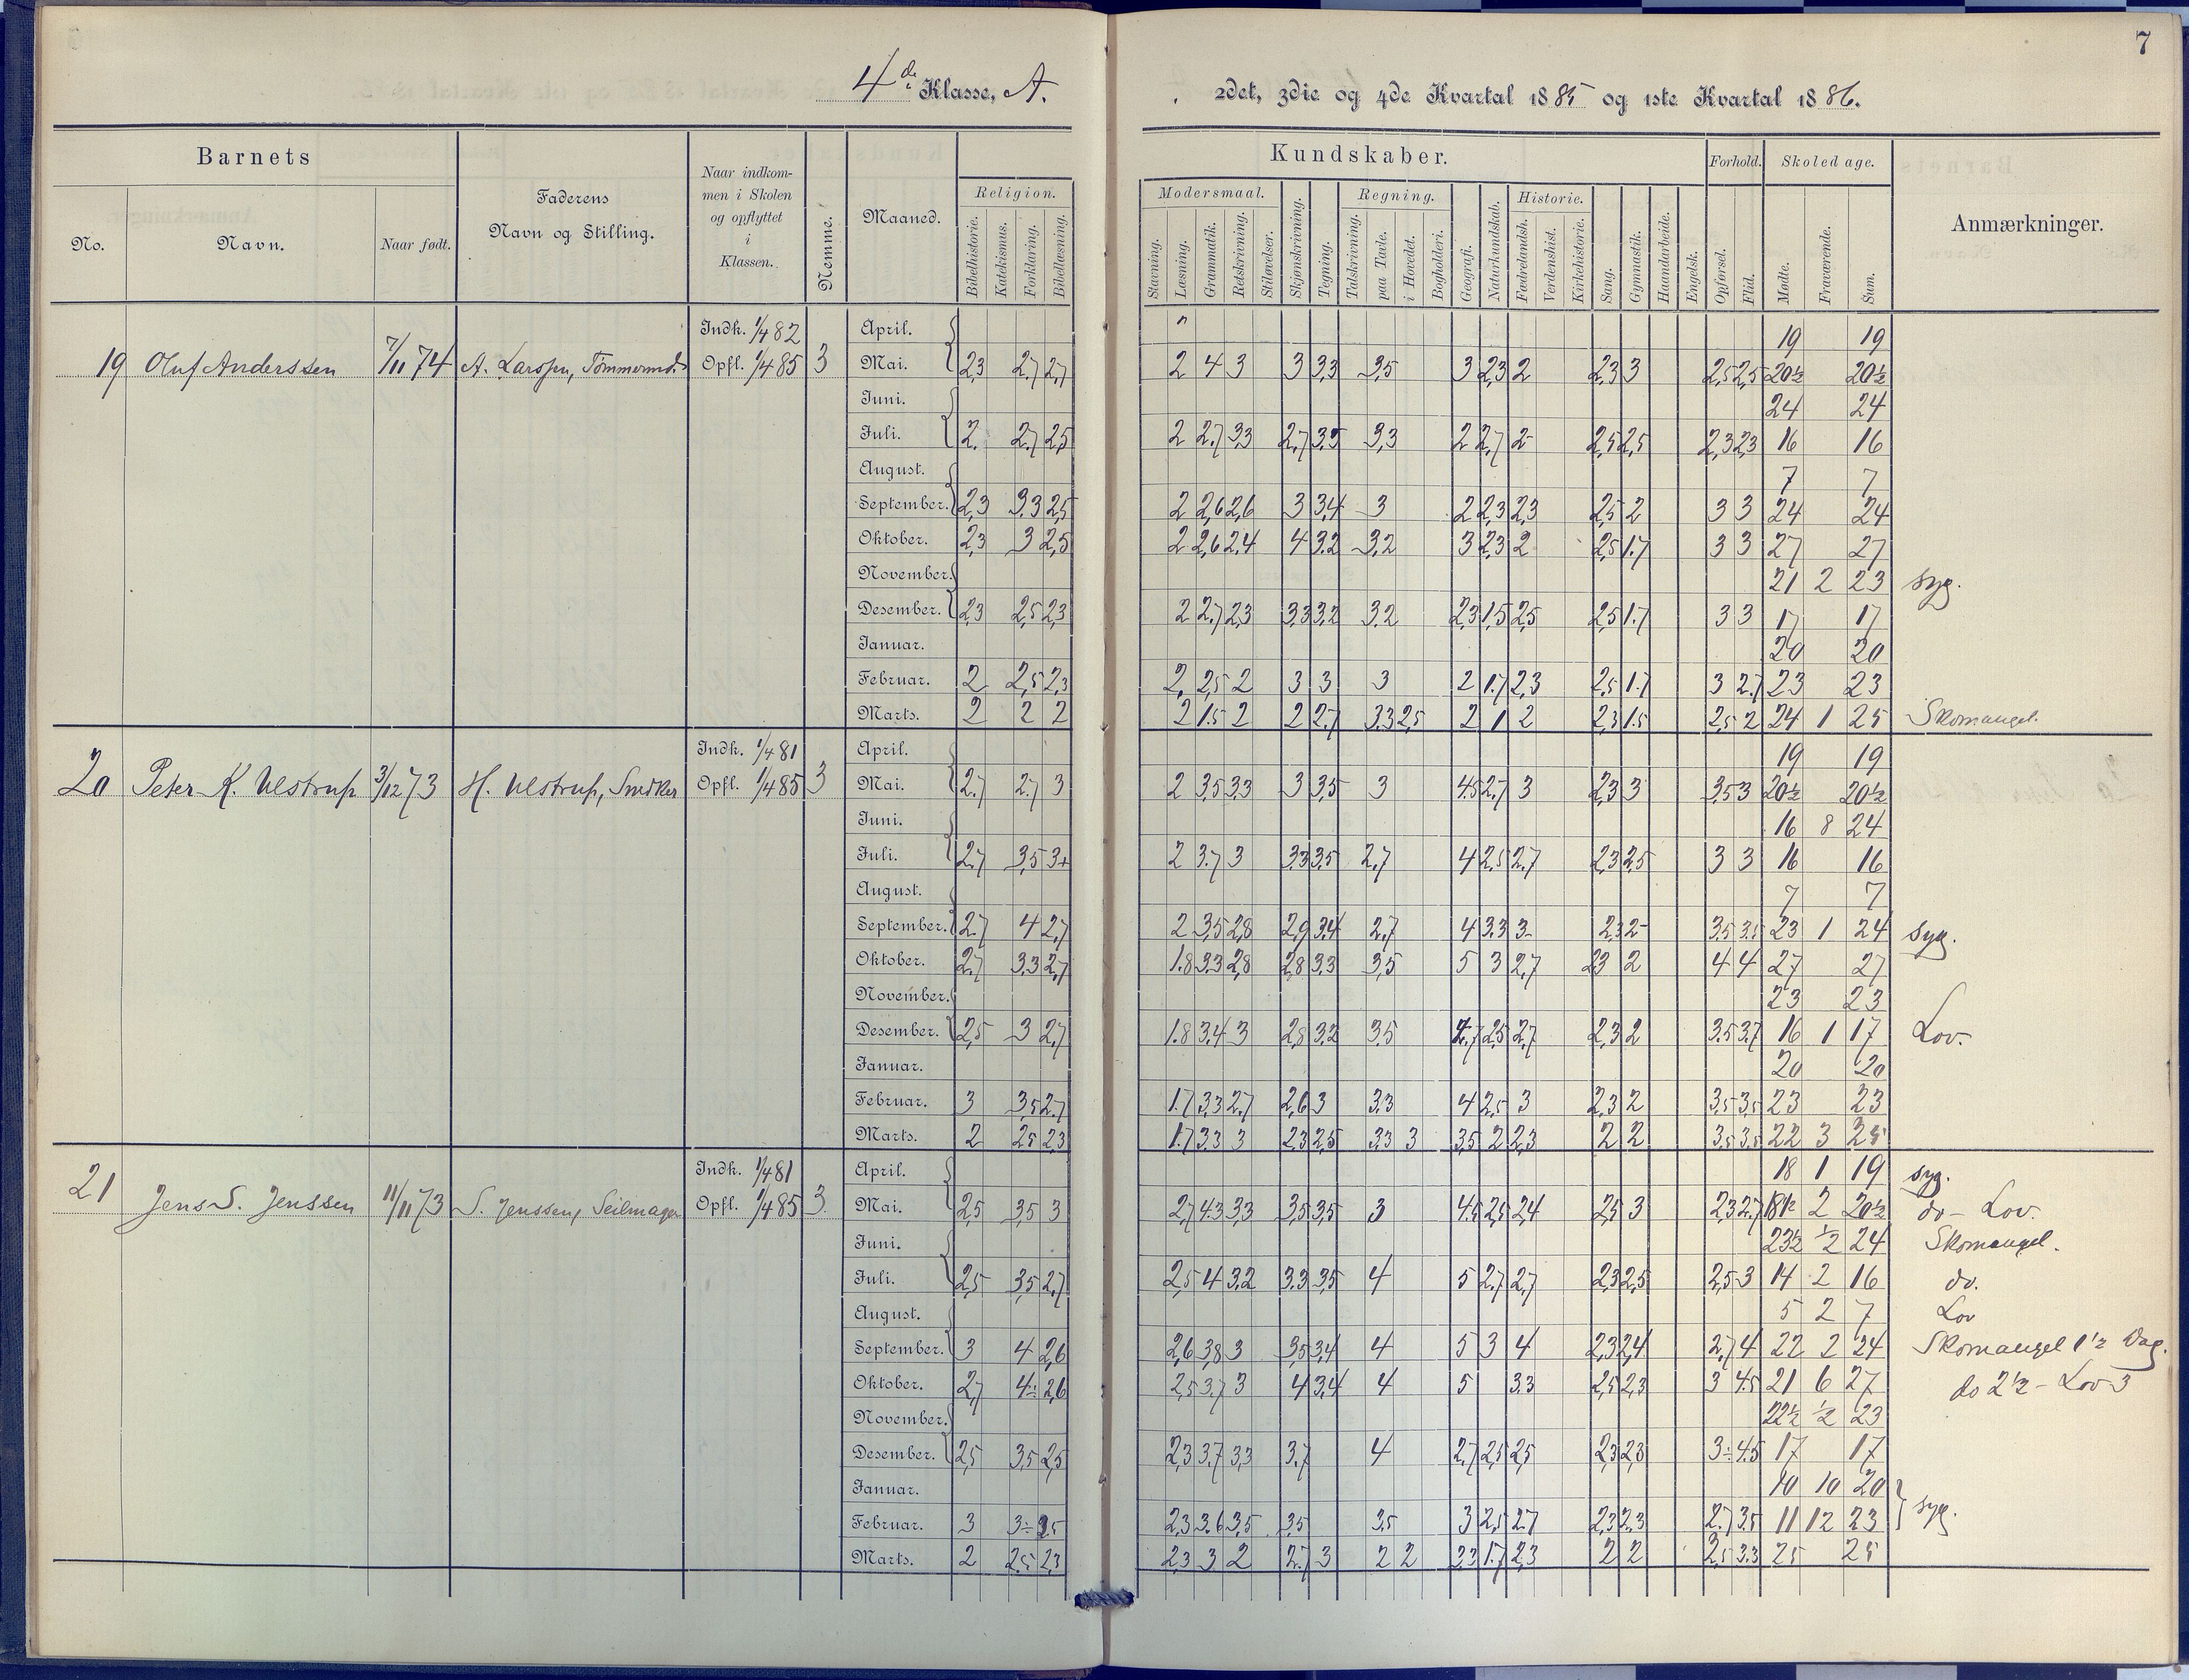 7
4de Klasse, A. 2det, 3die og 4de Kvartal 1885 og 1ste Kvartal 1886.
Barnets
Faderens Navn og Stilling.
Naar indkommen i Skolen og opflyttet i Klassen.
Nemme.
Maaned.
Kundskaber.
Forhold.
Skoledage.
Anmærkninger.
No. Navn. Naar født.
Religion. Modersmaal. Skjønskrivning. Tegning. Regning. Geografi. Naturkundskab. Historie. Sang. Gymnastik. Haandarbeide. Engelsk. Opførsel. Flid. Mødte. Fraværende. Sum.
Bibelhistorie. Katekismus. Forklaring. Bibellæsning. Stavning. Læsning. Grammatik. Retskrivning. Stiløvelser. Talskrivning. paa Tavle. i Hovedet. Bogholderi. Fædrelandsh. Verdenshist. Kirkehistorie.
Indk. 1/4 82 April. 19 19
19 Oluf Anderssen 7/11 74 A. Larssen, Tømmermd. Opfl. 1/4 85 3 Mai. 2,3 2,7 2,7 2 4 3 3 3,3 3,5 3 2,3 2 2,3 3 2,5 2,5 20½ 20½
Juni. 24 24
Juli. 2. 2,7 2,5 2 2,7 3,3 2,7 3,5 3,3 2 2,7 2 2,5 2,5 2,3 2,3 16 16
August. 7 7
September. 2,3 3,3 2,5 2 2,6 2,6 3 3,4 3 2 2,3 2,3 2,5 2 3 3 24 24
Oktober. 2,3 3 2,5 2 2,6 2,4 4 3,2 3,2 3 2,3 2 2,5 1.7 3 3 27 27
November. 21 2 23 syg.
Desember. 2,3 2,5 2,3 2 2,7 2,3 3,3 3,2 3,2 2,3 1,5 2,5 2,5 1.7 3 3 17 17
Januar. 20 20
Februar. 2 2,5 2,3 2, 2,5 2 3 3 3 2 1.7 2,3 2,5 1.7 3 2.7 23 23
Marts. 2 2 2 2 1.5 2 2 2,7 3,3 2,5 2 1 2 2,3 1.5 2,5 2 24 1 25 Skomangel.
Indk. 1/4 81 April. 19 19
20 Peter K. Ulstrup 3/12 73 H. Ulstrup, Snedker Opfl. 1/4 85 3 Mai. 2.7 2.7 3 2 3,5 3,3 3 3,5 3 4.5 2.7 3 2,3 3 3,5 3 20½ 20½
Juni. 16 8 24
Juli. 2.7 3,5 3+ 2 3.7 3 3,3 3,5 2,7 4 2,5 2.7 2,3 2,5 3 3 16 16
August. 7 7
September. 2.7 4 2,7 2 3,5 2,8 2,9 3,4 2,7 4 3.3 3 2,3 2 3.5 3.5 23 1 24 syg.
Oktober. 2.7 3,3 2,7 1.8 3.3 2,8 2,8 3,3 3,5 5 3 2,7 2,3 2 4 4 27 27
November. 23 23
Desember. 2,5 3 2,7 1.8 3,4 3 2,8 3,2 3,5 2.7 2,5 2.7 2,3 2 3.5 3.7 16 1 17 Lov.
Januar. 20 20
Februar. 3 3,5 2.7 1.7 3,3 2.7 2,6 3 3,3 4 2,5 3 2,3 2 3,5 3,5 23 23
Marts. 2 2,5 2,3 1.7 3,3 3 2,3 2,5 3,3 3 3,5 2 2,3 2 2 3,5 3,5 22 3 25
Indk. 1/4 81 April. 18 1 19 syg.
21 Jens S. Jenssen 11/11 73 S. Jenssen, Seilmager Opfl. 1/4 85 3. Mai. 2,5 3,5 3 2,7 4.3 3,3 3,5 3,5 3 4.5 2,5 2,4 2,5 3 2,3 2.7 18½ 2 20½ do - Lov.
Juni. 23½ ½ 24 Skomangel.
Juli. 2,5 3,5 2.7 2,5 4 3,2 3.3 3,5 4 5 2.7 2,7 2,3 2,5 2,5 3 14 2 16 do.
August. 5 2 7 Lov
September. 3 4 2,6 2,6 3,8 3 3,5 3,4 4 5 3 4 2,3 2,4 2,7 4 22 2 24 Skomangel 1½ Dag.
Oktober. 2,7 4÷ 2,6 2,5 3.7 3 4 3,4 4 5 3.3 2,5 2,3 3 4.5 21 6 27 do 2½ - Lov 3
November. 22½ ½ 23
Desember. 2,5 3,5 2,5 2,3 3.7 3,3 3.7 4 2.7 2,5 2,5 2,3 2,3 3÷ 4.5 17 17
Januar. 10 10 20
Februar. 3 3÷ 2.5 2,3 3.6 3,5 3,5 3,5 3 2,5 2.7 2,3 2,3 2.7 3,5 11 12 23 syg.
Marts. 2 2,5 2,3 2,3 3 2 2.7 3 2 2 2,3 1.7 2,3 2 2 2,5 3.3 25 25